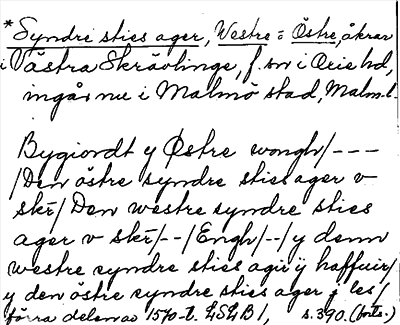 *Syndre sties ager, Westre = Östre, åkrar
i Västra Skrävlinge, f. sn i Oxie hd,
ingår nu i Malmö stad, Malm. l.
Bygiordt y Østre wongh/---
/Den östre syndre sties ager v
skē/ Den westre syndre sties
ager v skē/--/Engh/--/y denn
westre syndre sties ager y haffuir/
y den östre syndre sties ager j les/
förra delen av 1570-t. LSLB1, s. 390. (forts.)